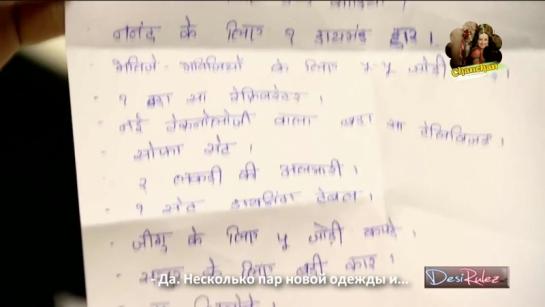 ननंद के लिए १ डायमंड हार।
भतिजे - भतिजियों के लिए ५-५ जोड़ी
Chanchan
१ बड़ा सा रेफ्रिजरेटर।
नई टेक्नोलोजी वाला बड़ा सा टेलिविजन।
सोफा सेट।
२ लकड़ी की अलमारी।
१ सेट डायनिंग टेबल।
जीगु के लिए ५ जोड़ी कपड़े।
के लिए बड़ी कार।
- Да. Несколько пар новой одежды и...
DesiRulez